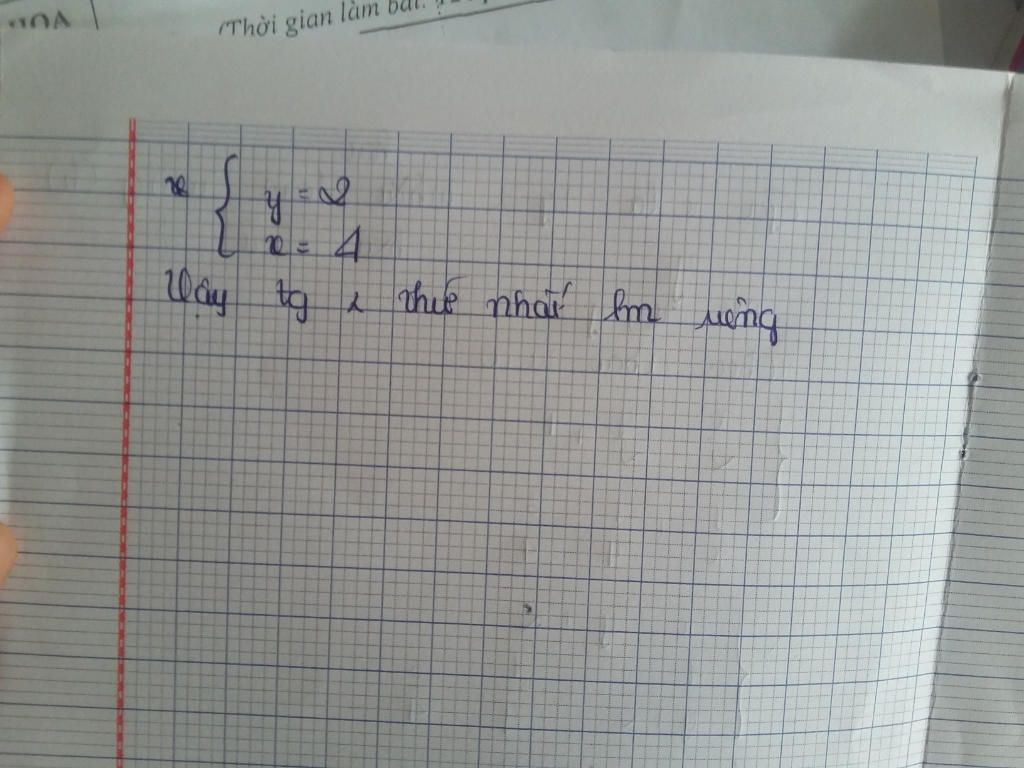 HOA
(Thời gian làm bài:
y = 2
x = 4
Vậy tg thứ nhất làm riêng